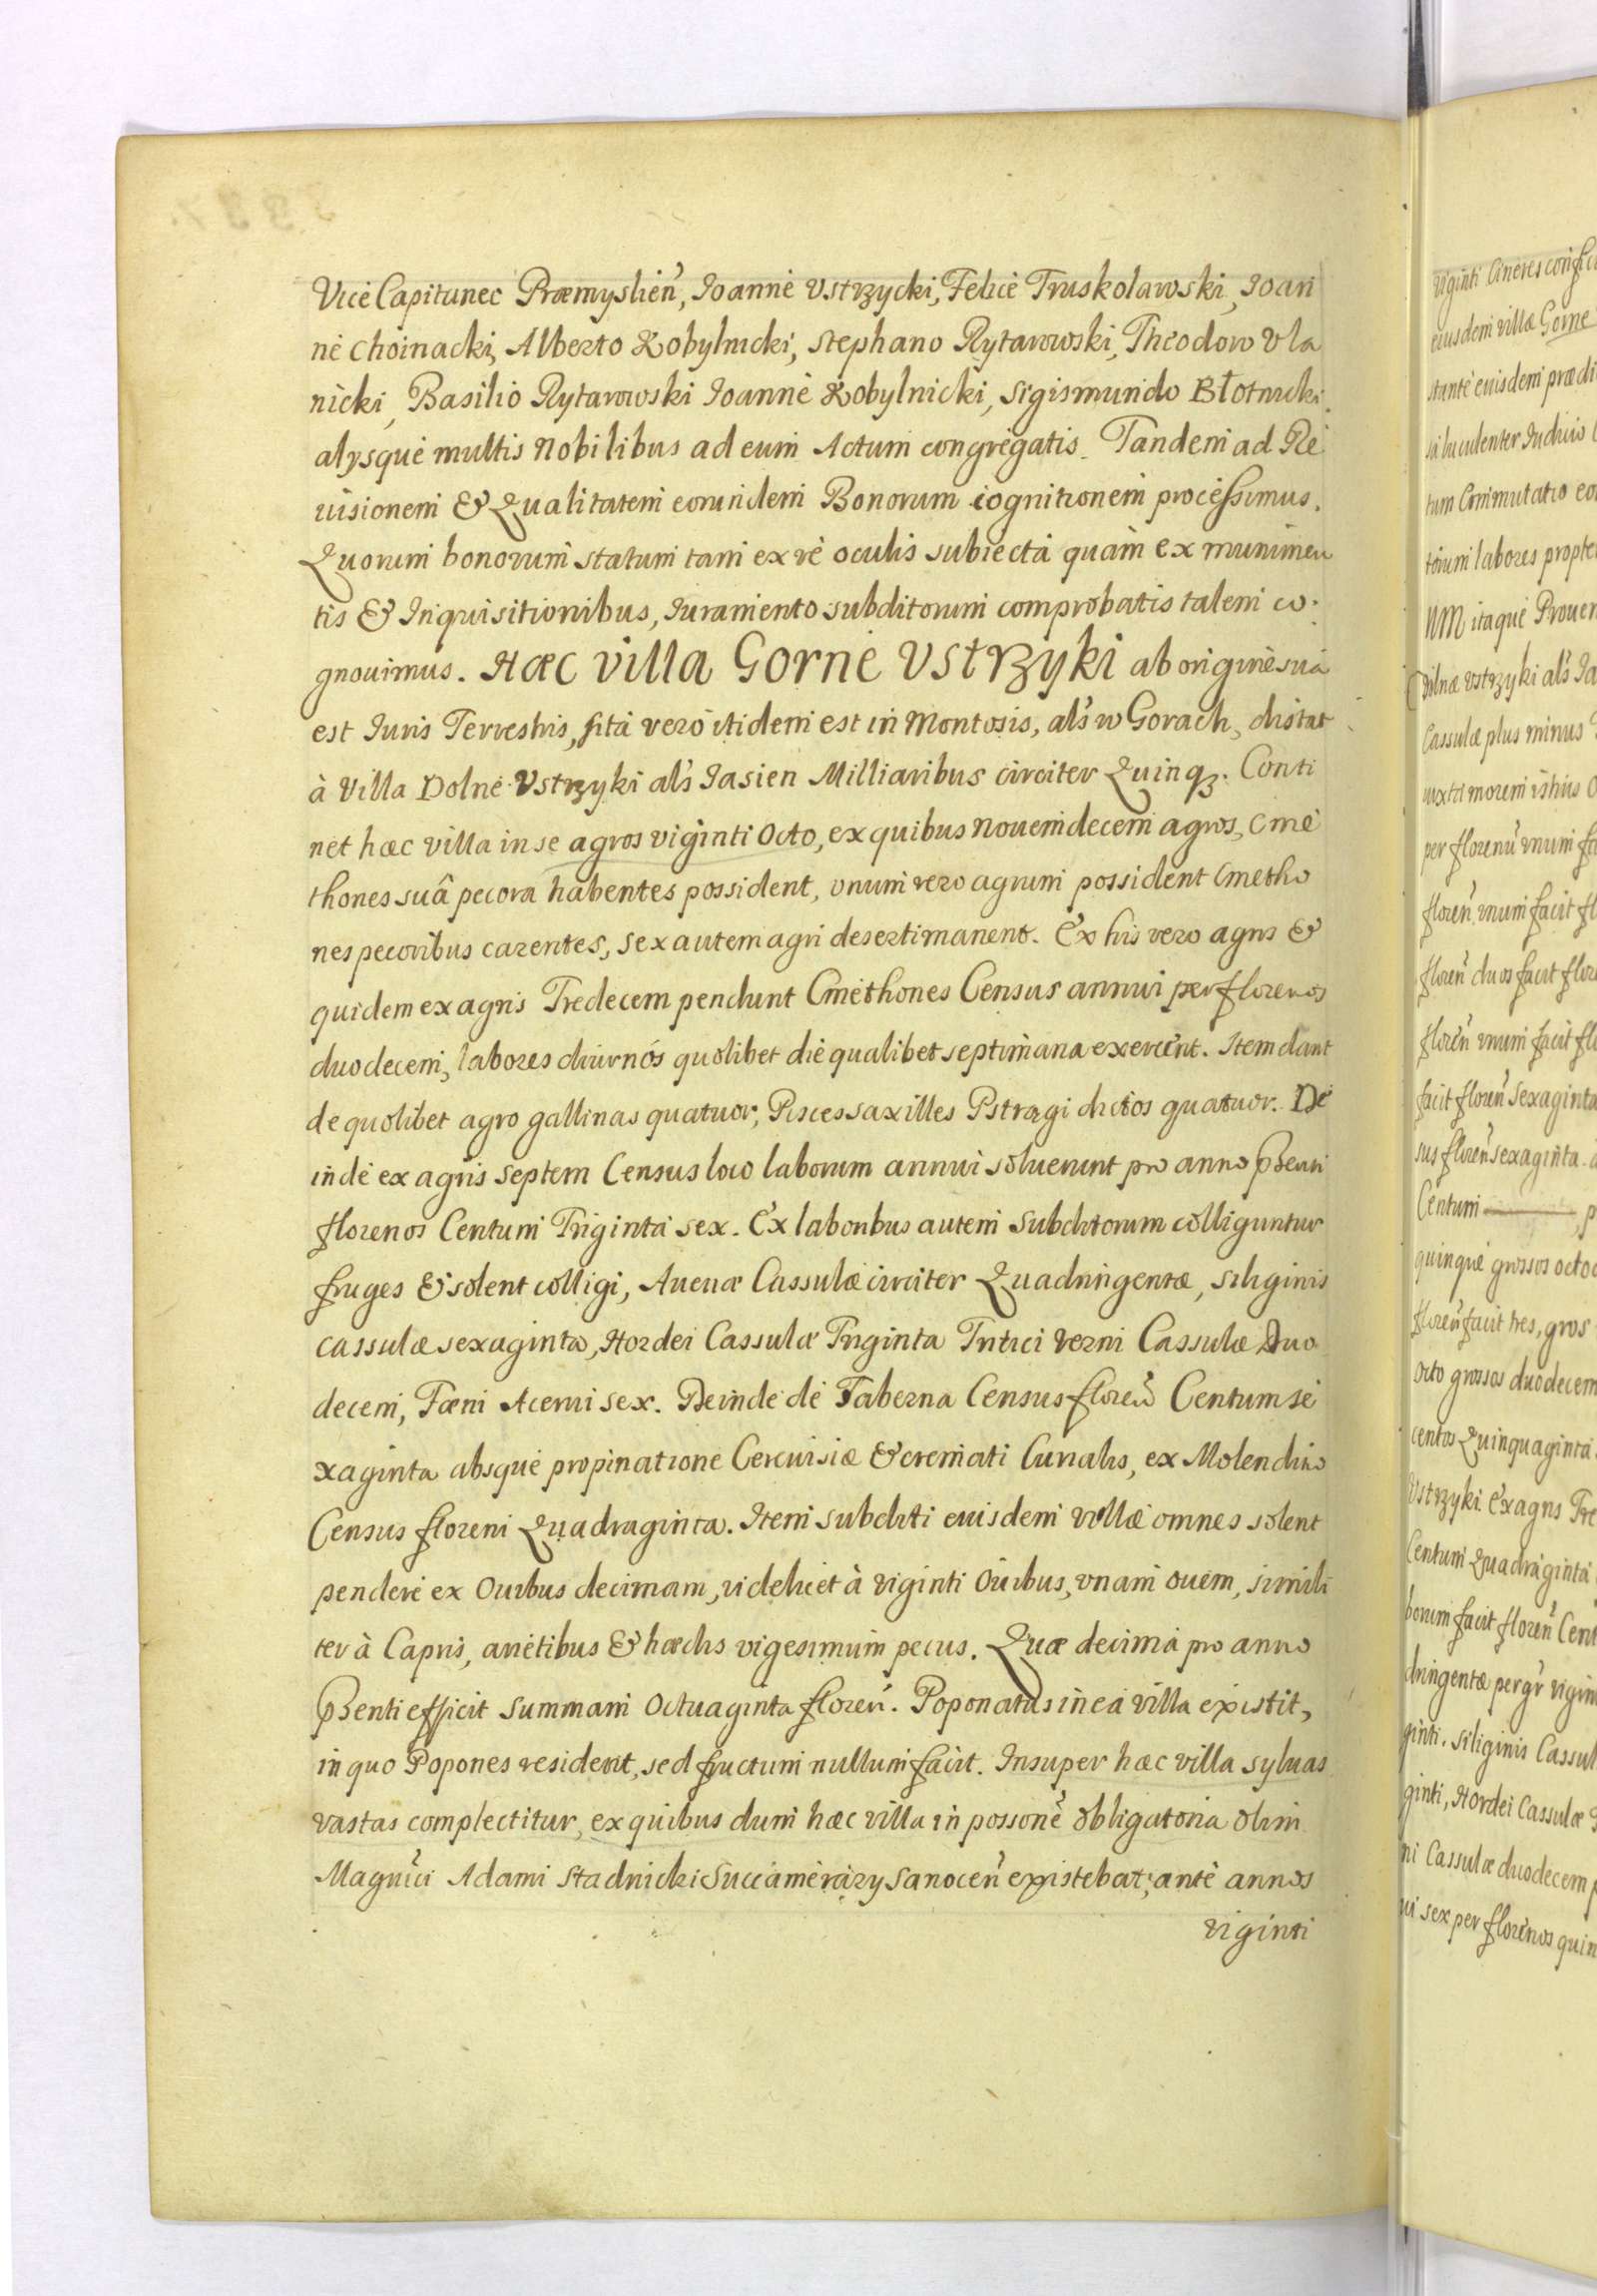 Vice Capitanec Præmyslień, Joanne Vstrzycki, Felice Truskolawski, Joan
ne Choinacki, Alberto Kobylnicki, Stephano Rytarowski, Theodoro Vla
nicki, Basilio Rytarowski Joanne Kobylnicki, Sigismundo Błotnicki
alysque multis Nobilibus ad eum Actum congregatis. Tandem ad Re
uisionem & Qualitatem eorundem Bonorum cognitionem processimus.
Quorum bonorum statum tam ex re oculis subiecta quam ex munimen
tis & Inquisitionibus, Juramento subditorum comprobatis talem co.
gnouimus. Hæc villa Gorne Vstrzyki ab origine sua
est Juris Terrestris, sita vero itidem est in Montosis, als w Gorach, distat
à Villa Dolne Vstrzyki als Jasien Milliaribus circiter Quinqȝ. Conti
net hæc villa in se agros viginti Octo, ex quibus Nouemdecem agros, Cme
thones suâ pecora habentes possident, vnum vero agrum possident Cmetho
nes pecoribus carentes, sex autem agri deserti manent. Ex his vero agris &
quidem ex agris Tredecem pendunt Cmethones Census annui per florenos
duodecem, labores diurnós quolibet die qualibet septimana exercent. Item dant
de quolibet agro gallinas quatuor, Pisces saxilles Pstragi dictos quatuor. De
inde ex agris septem Census loco laborum annui soluerunt pro anno Pßenti
florenos Centum Triginta sex. Ex laboribus autem Subditorum colliguntur
fruges & solent colligi, Auenæ Cassulæ circiter Quadringentæ, siliginis
cassulæ sexaginta, Hordei Cassulæ Triginta Tritici verni Cassulæ Duo
decem, Fæni Acerui sex. Deinde de Taberna Census floreń Centum se
xaginta absque propinatione Cereuisiæ & cremati Curialis, ex Molendino
Census floreni Quadraginta. Item subditi euisdem villæ omnes solent
pendere ex Ouibus decimam, videlicet à viginti Ouibus, vnam ouem, simili
ter à Capris, arietibus & hædis vigesimum pecus. Quæ decima pro anno
Pßenti efficit summam Octuaginta floreń. Poponatus in ea villa existit,
in quo Popones resident, sed fructum nullum facit. Insuper hæc villa syluas
vastas complectitur, ex quibus dum hæc villa in possone obligatoria olim
Magnici Adami Stadnicki Succamerary Sanoceń existebat, ante annos
viginti
viginti Cineres
eiusdem villæ Gorne
stante euisdem prædi
luculenter Induio
tum Commutatio eo
labores propte
NM itaque Prouen
Dolnæ Vstrzyki als Ja
Cassulæ plus minus
iuxta morem istius O
per florenū vnum fa
floreń vnum facit fl
floreń duos facit flor
floreń vnum facit flo
facit floreń sexaginta
sus floreń sexaginta
Centum
quinque grossos octo
floreń facit tres, gros
octo grossos duodecem
centos Quinquaginta
Vstrzyki. Ex agris Tre
Centum Quadraginta
borum facit floreń Cent
dringentæ per gr vigin
ginti. Siliginis Cassul
ginti, Hordei Cassulæ
ni Cassulæ duodecem p
ui sex per florenos quin